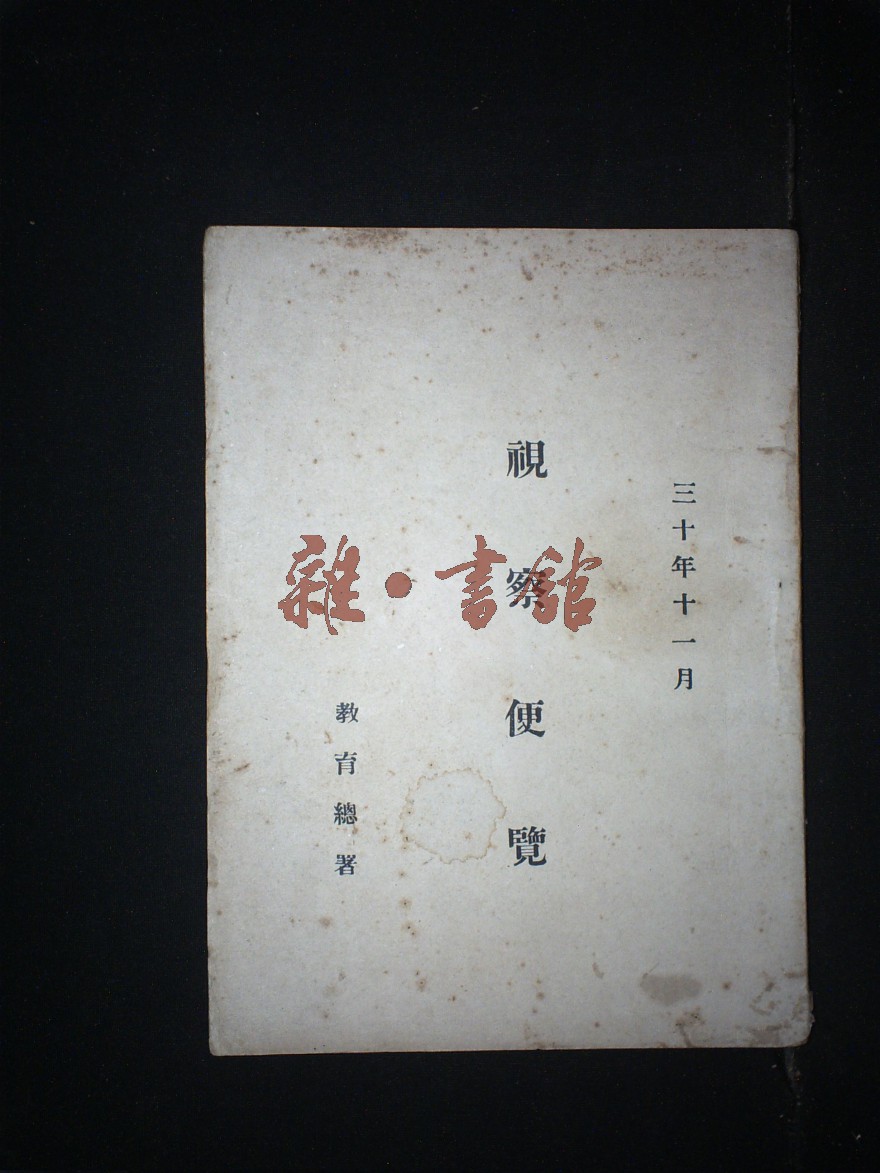 三十年十一月
視察便覽
教育總署
雜·書館